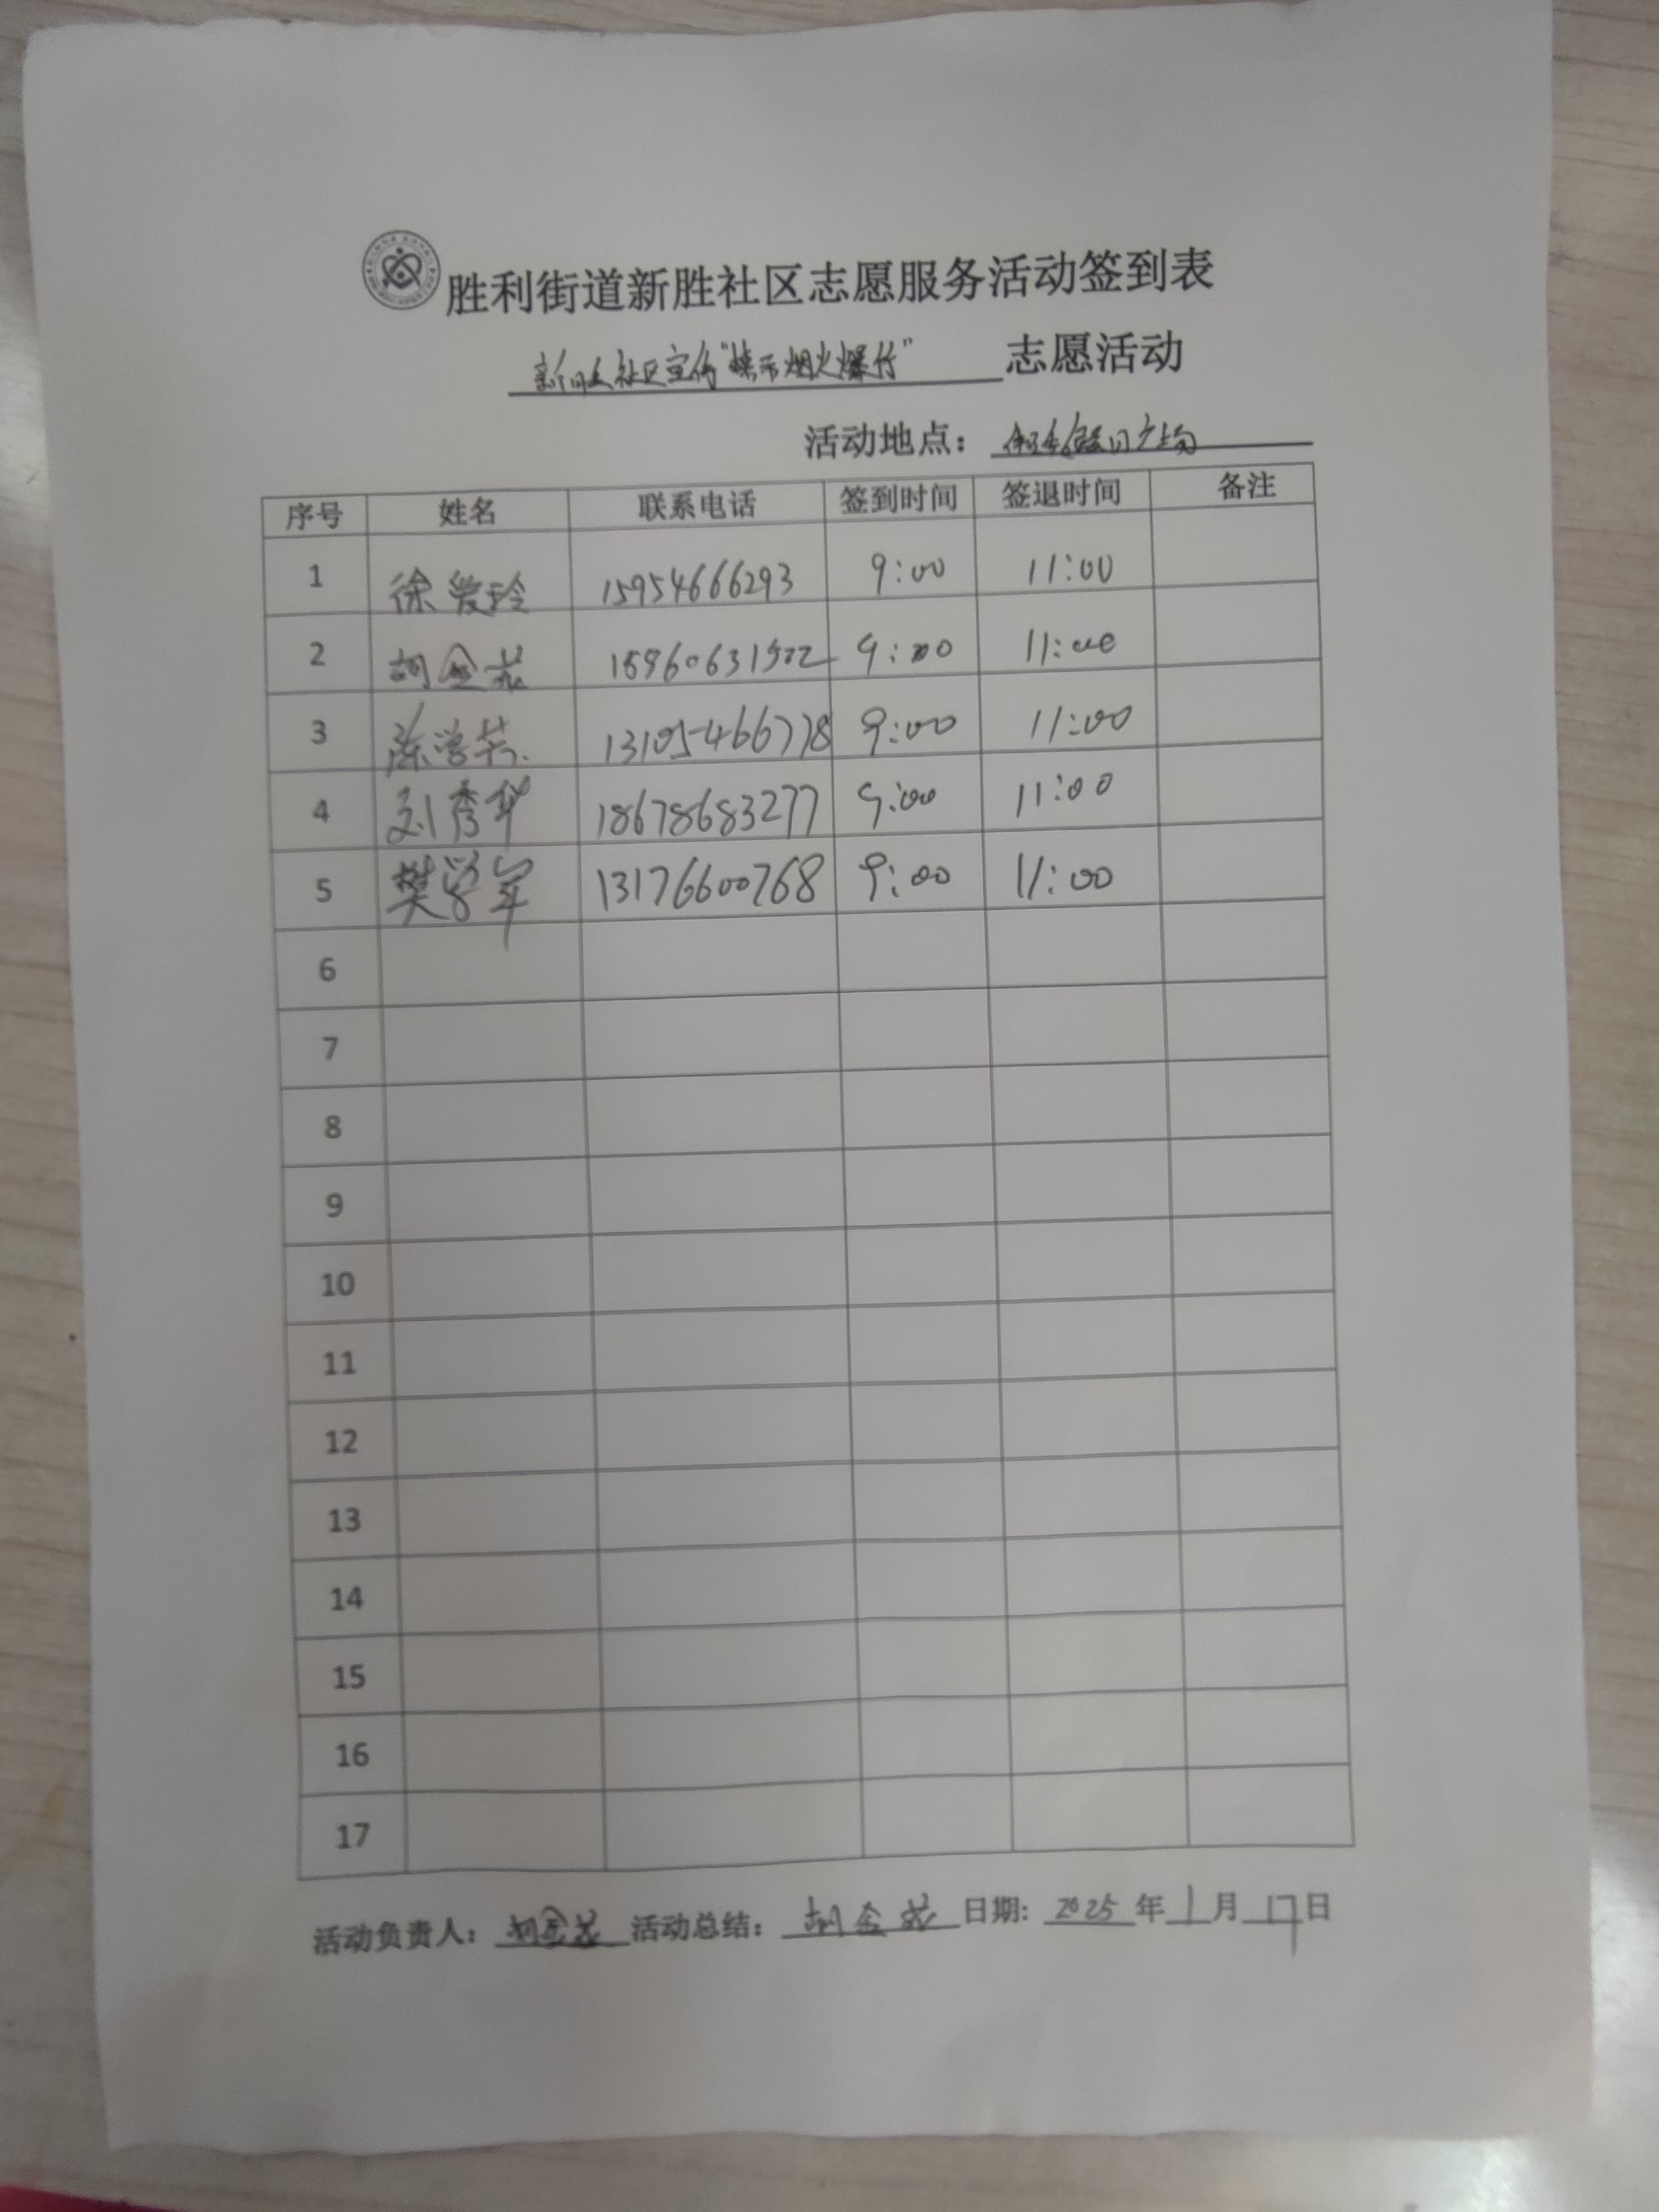 胜利街道新胜社区志愿服务活动签到表
社区宣传“禁市烟火爆竹” 志愿活动
活动地点： 假日广场
序号 姓名 联系电话 签到时间 签退时间 备注
1 徐爱玲 15954666293 9:00 11:00
2 胡金 9:00 11:00
3 陈学芳 13105466778 9:00 11:00
4 刘秀华 18678683277 9:00 11:00
5 樊学军 13176600768 9:00 11:00
6
7
8
9
10
11
12
13
14
15
16
17
活动负责人： 胡金 活动总结： 胡金 日期: 2025 年 1 月 17 日